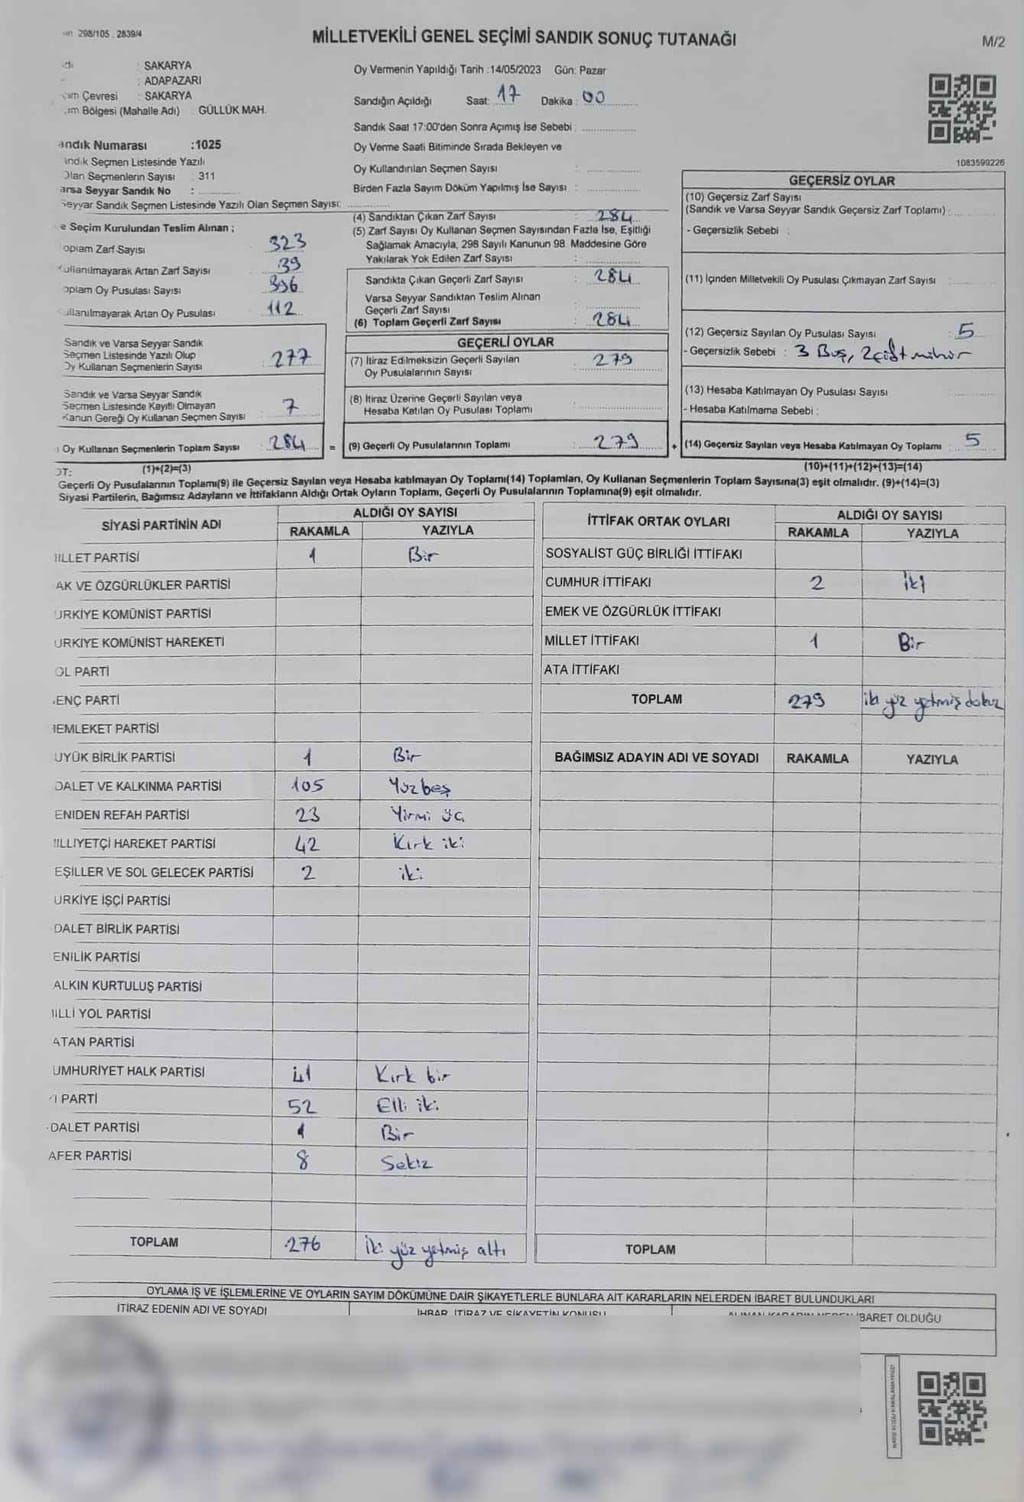 298/105 , 2839/4
MİLLETVEKİLİ GENEL SEÇİMİ SANDIK SONUÇ TUTANAĞI
M/2
: SAKARYA
: ADAPAZARI
Çevresi : SAKARYA
Bölgesi (Mahalle Adı) : GÜLLÜK MAH.
Oy Vermenin Yapıldığı Tarih :14/05/2023 Gün: Pazar
Sandığın Açıldığı Saat: 17 Dakika : 00
Sandık Saat 17:00'den Sonra Açımış İse Sebebi :
Oy Verme Saati Bitiminde Sırada Bekleyen ve
Oy Kullandırılan Seçmen Sayısı :
Birden Fazla Sayım Döküm Yapılmış İse Sayısı :
andık Numarası :1025
andık Seçmen Listesinde Yazılı
Olan Seçmenlerin Sayısı : 311
arsa Seyyar Sandık No :
Seyyar Sandık Seçmen Listesinde Yazılı Olan Seçmen Sayısı:
1083599226
e Seçim Kurulundan Teslim Alınan ;
oplam Zarf Sayısı 323
ullanılmayarak Artan Zarf Sayısı 39
oplam Oy Pusulası Sayısı 396
ullanılmayarak Artan Oy Pusulası 112
Sandık ve Varsa Seyyar Sandık
Seçmen Listesinde Yazılı Olup
Oy Kullanan Seçmenlerin Sayısı 277
Sandık ve Varsa Seyyar Sandık
Seçmen Listesinde Kayıtlı Olmayan
Kanun Gereği Oy Kullanan Seçmen Sayısı 7
Oy Kullanan Seçmenlerin Toplam Sayısı 284 =
(1)+(2)=(3)
(4) Sandıktan Çıkan Zarf Sayısı : 284
(5) Zarf Sayısı Oy Kullanan Seçmen Sayısından Fazla İse, Eşitliği
Sağlamak Amacıyla, 298 Sayılı Kanunun 98. Maddesine Göre
Yakılarak Yok Edilen Zarf Sayısı :
Sandıkta Çıkan Geçerli Zarf Sayısı : 284
Varsa Seyyar Sandıktan Teslim Alınan
Geçerli Zarf Sayısı :
(6) Toplam Geçerli Zarf Sayısı : 284
GEÇERLİ OYLAR
(7) İtiraz Edilmeksizin Geçerli Sayılan
Oy Pusulalarının Sayısı : 279
(8) İtiraz Üzerine Geçerli Sayılan veya
Hesaba Katılan Oy Pusulası Toplamı :
(9) Geçerli Oy Pusulalarının Toplamı : 279 +
GEÇERSİZ OYLAR
(10) Geçersiz Zarf Sayısı
(Sandık ve Varsa Seyyar Sandık Geçersiz Zarf Toplamı) :
- Geçersizlik Sebebi :
(11) İçinden Milletvekili Oy Pusulası Çıkmayan Zarf Sayısı :
(12) Geçersiz Sayılan Oy Pusulası Sayısı : 5
- Geçersizlik Sebebi : 3 Boş, 2 çift mühür
(13) Hesaba Katılmayan Oy Pusulası Sayısı :
- Hesaba Katılmama Sebebi :
(14) Geçersiz Sayılan veya Hesaba Katılmayan Oy Toplamı : 5
(10)+(11)+(12)+(13)=(14)
OT:
Geçerli Oy Pusulalarının Toplamı(9) ile Geçersiz Sayılan veya Hesaba katılmayan Oy Toplamı(14) Toplamları, Oy Kullanan Seçmenlerin Toplam Sayısına(3) eşit olmalıdır. (9)+(14)=(3)
Siyasi Partilerin, Bağımsız Adayların ve İttifakların Aldığı Ortak Oyların Toplamı, Geçerli Oy Pusulalarının Toplamına(9) eşit olmalıdır.
SİYASİ PARTİNİN ADI
ALDIĞI OY SAYISI
RAKAMLA YAZIYLA
İLLET PARTİSİ 1 Bir
AK VE ÖZGÜRLÜKLER PARTİSİ
ÜRKİYE KOMÜNİST PARTİSİ
ÜRKİYE KOMÜNİST HAREKETİ
OL PARTİ
ENÇ PARTİ
MEMLEKET PARTİSİ
ÜYÜK BİRLİK PARTİSİ 1 Bir
DALET VE KALKINMA PARTİSİ 105 Yüzbeş
ENİDEN REFAH PARTİSİ 23 Yirmi üç
İLLİYETÇİ HAREKET PARTİSİ 42 Kırk iki
EŞİLLER VE SOL GELECEK PARTİSİ 2 iki
ÜRKİYE İŞÇİ PARTİSİ
DALET BİRLİK PARTİSİ
ENİLİK PARTİSİ
ALKIN KURTULUŞ PARTİSİ
İLLİ YOL PARTİSİ
ATAN PARTİSİ
UMHURİYET HALK PARTİSİ 41 Kırk bir
İ PARTİ 52 Elli iki
DALET PARTİSİ 1 Bir
AFER PARTİSİ 8 Sekiz
TOPLAM 276 İki yüz yetmiş altı
İTTİFAK ORTAK OYLARI
ALDIĞI OY SAYISI
RAKAMLA YAZIYLA
SOSYALİST GÜÇ BİRLİĞİ İTTİFAKI
CUMHUR İTTİFAKI 2 İki
EMEK VE ÖZGÜRLÜK İTTİFAKI
MİLLET İTTİFAKI 1 Bir
ATA İTTİFAKI
TOPLAM 279 iki yüz yetmiş dokuz
BAĞIMSIZ ADAYIN ADI VE SOYADI RAKAMLA YAZIYLA
TOPLAM
OYLAMA İŞ VE İŞLEMLERİNE VE OYLARIN SAYIM DÖKÜMÜNE DAİR ŞİKAYETLERLE BUNLARA AİT KARARLARIN NELERDEN İBARET BULUNDUKLARI
İTİRAZ EDENİN ADI VE SOYADI
İHBAR, İTİRAZ VE ŞİKAYETİN KONUSU
İBARET OLDUĞU